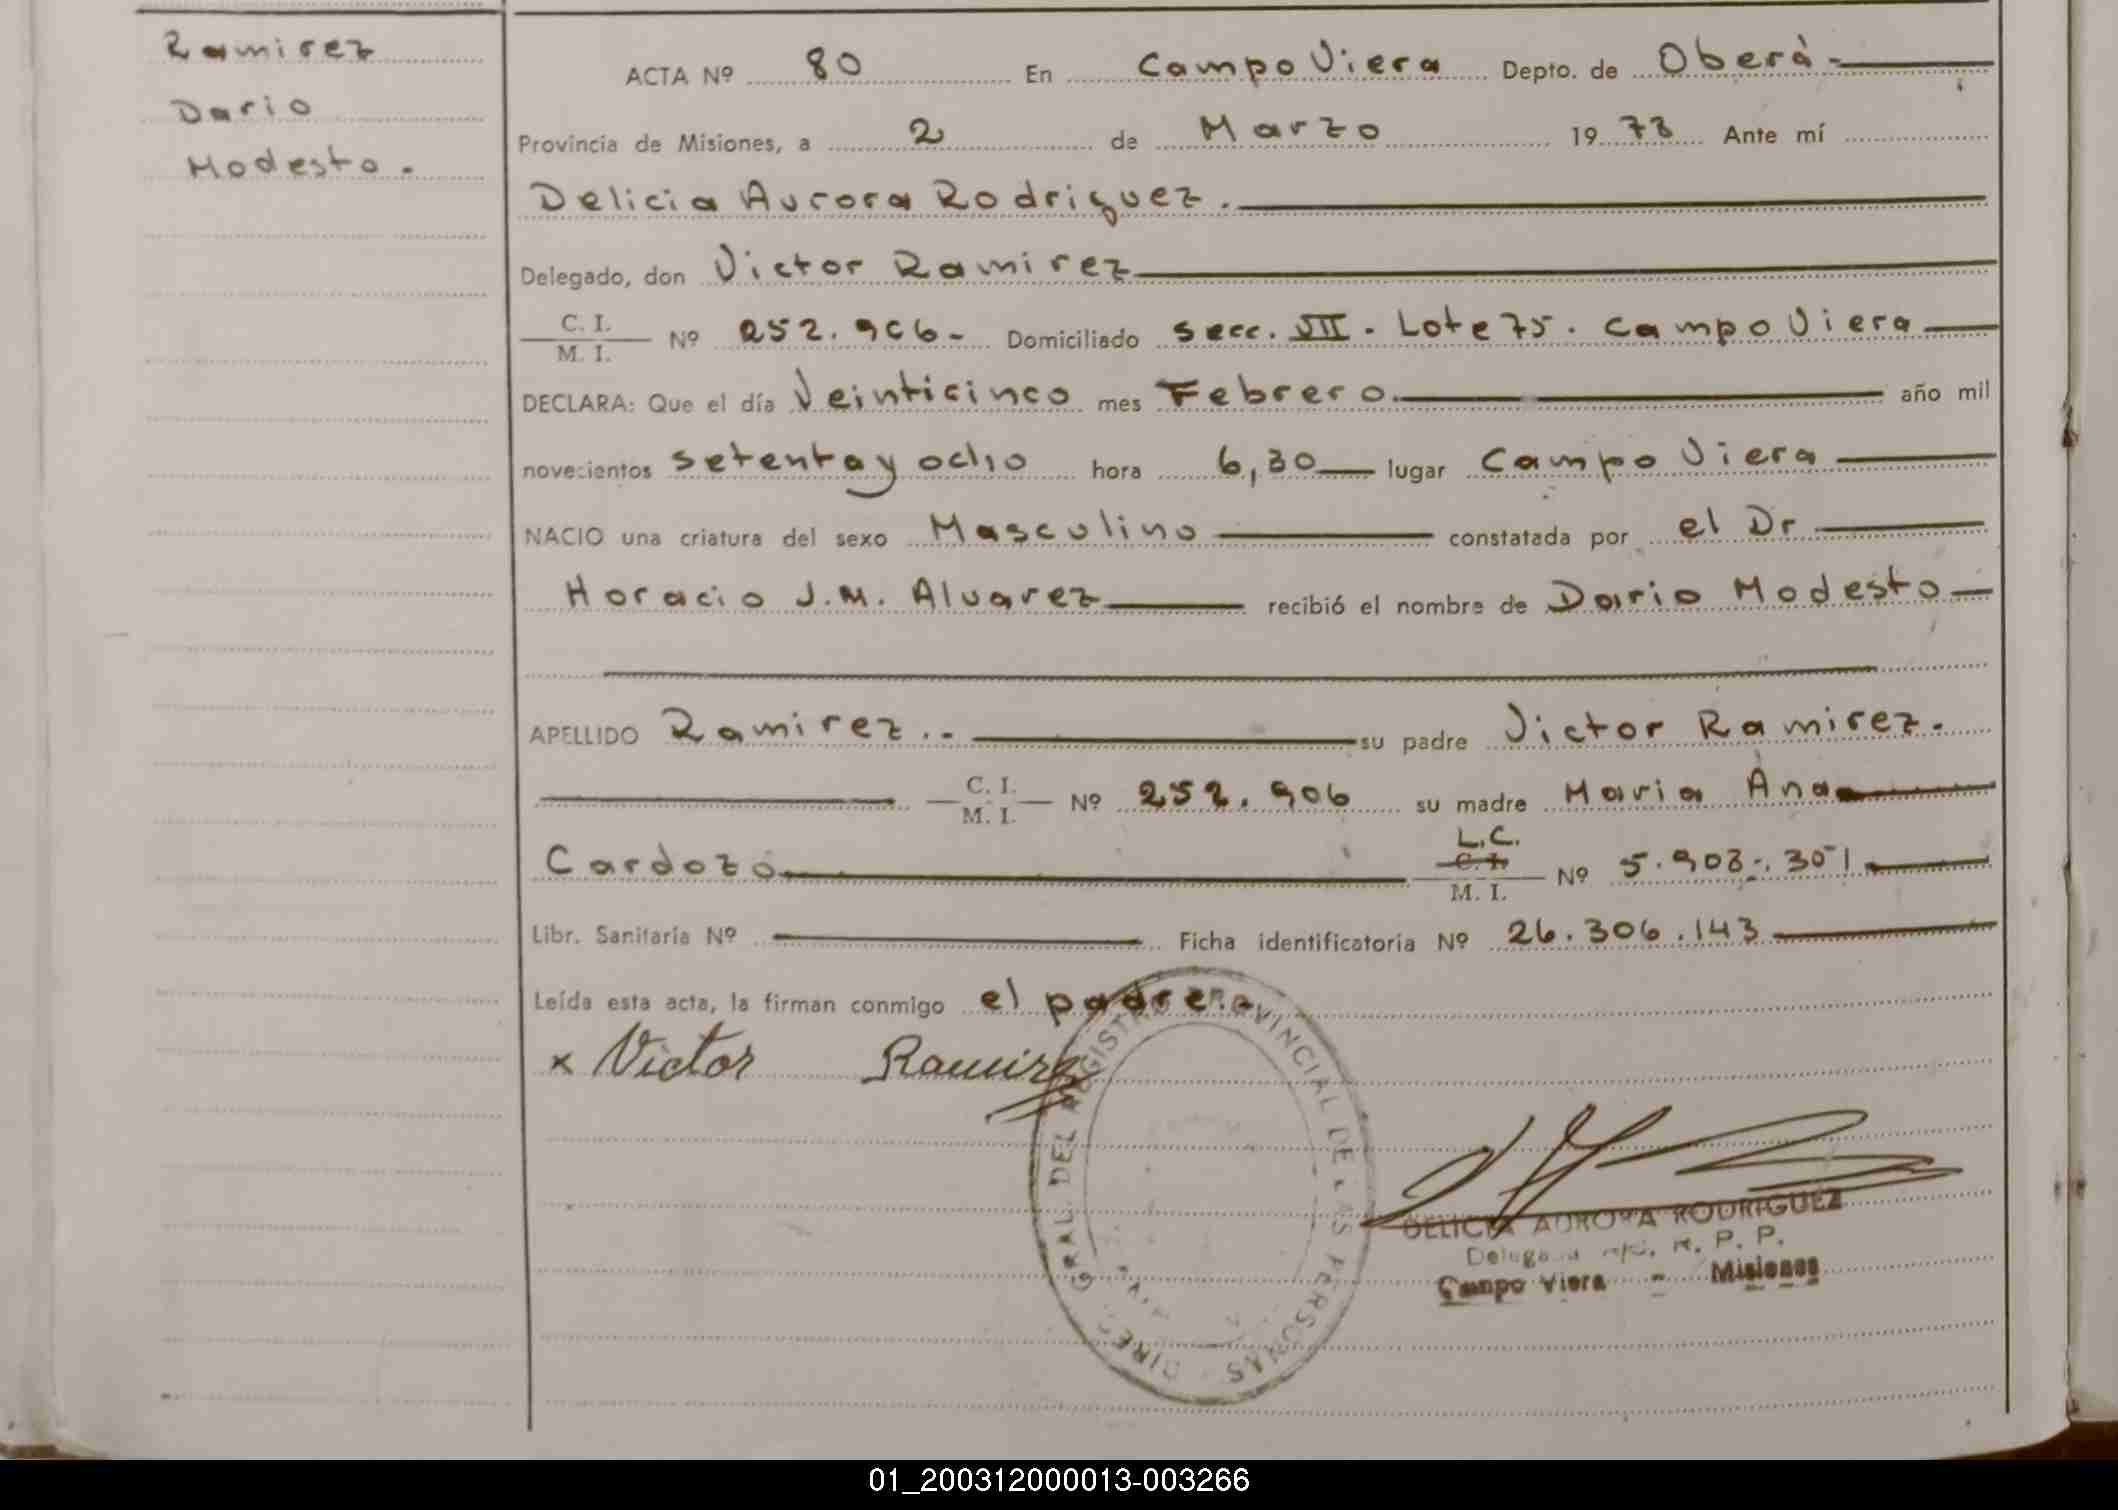 Ramirez
Dario
Modesto.
ACTA Nº 80 En Campo Viera Depto. de Oberá-
Provincia de Misiones, a 2 de Marzo 1978 Ante mí
Delicia Aurora Rodriguez.
Delegado, don Victor Ramirez
C. I. / M. I. Nº 252.906- Domiciliado Secc. VII. Lote 75. Campo Viera
DECLARA: Que el día Veinticinco mes Febrero. año mil
novecientos setenta y ocho hora 6,30 lugar Campo Viera
NACIO una criatura del sexo Masculino constatada por el Dr
Horacio J.M. Alvarez recibió el nombre de Dario Modesto
APELLIDO Ramirez.- su padre Victor Ramirez.
C. I. / M. I. Nº 252.906 su madre Maria Ana
Cardozo L.C. C. I. / M. I. Nº 5.908.301
Libr. Sanitaría Nº Ficha identificatoria Nº 26.306.143
Leída esta acta, la firman conmigo el padre.-
x Victor Ramirez
DIREC. GRAL. DEL REGISTRO PROVINCIAL DE LAS PERSONAS
DELICIA AURORA RODRIGUEZ
R. P. P.
Campo Viera - Misiones
01_200312000013-003266